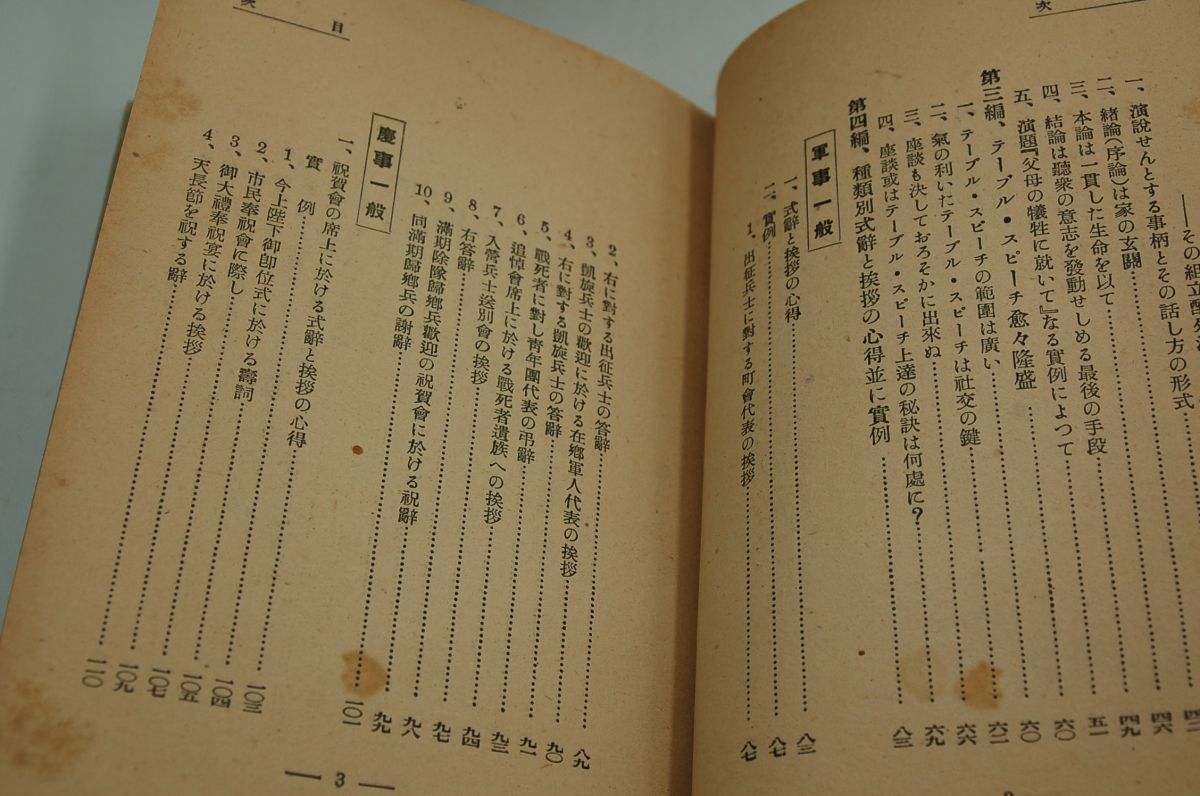 次
――その組立配
一、演說せんとする事柄とその話し方の形式
二、緒論(序論)は家の玄關……四三
三、本論は一貫した生命を以て……四六
四、結論は聽衆の意志を發動せしめる最後の手段……四九
五、演題『父母の犧牲に就いて』なる實例によつて……五一
第三編、テーブル・スピーチ愈々隆盛……六〇
一、テーブル・スピーチの範圍は廣い……六〇
二、氣の利いたテーブル・スピーチは社交の鍵……六二
三、座談も決しておろそかに出來ぬ……六六
四、座談或はテーブル・スピーチ上達の秘訣は何處に?……六九
第四編、種類別式辭と挨拶の心得並に實例……八三
軍事一般
一、式辭と挨拶の心得……八三
二、實例……八七
1、出征兵士に對する町會代表の挨拶……八七
目次
2、右に對する出征兵士の答辭……八九
3、凱旋兵士の歡迎に於ける在鄕軍人代表の挨拶……九〇
4、右に對する凱旋兵士の答辭……九一
5、戰死者に對し靑年團代表の弔辭……九三
6、追悼會席上に於ける戰死者遺族への挨拶……九四
7、入營兵士送別會の挨拶……九七
8、右答辭……九八
9、滿期除隊歸鄕兵歡迎の祝賀會に於ける祝辭……九九
10、同滿期歸鄕兵の謝辭……一〇一
慶事一般
一、祝賀會の席上に於ける式辭と挨拶の心得……一〇三
實例……一〇四
1、今上陛下御卽位式に於ける壽詞……一〇五
2、市民奉祝會に際し……一〇七
3、御大禮奉祝宴に於ける挨拶……一〇九
4、天長節を祝する辭……一一〇
― 3 ―